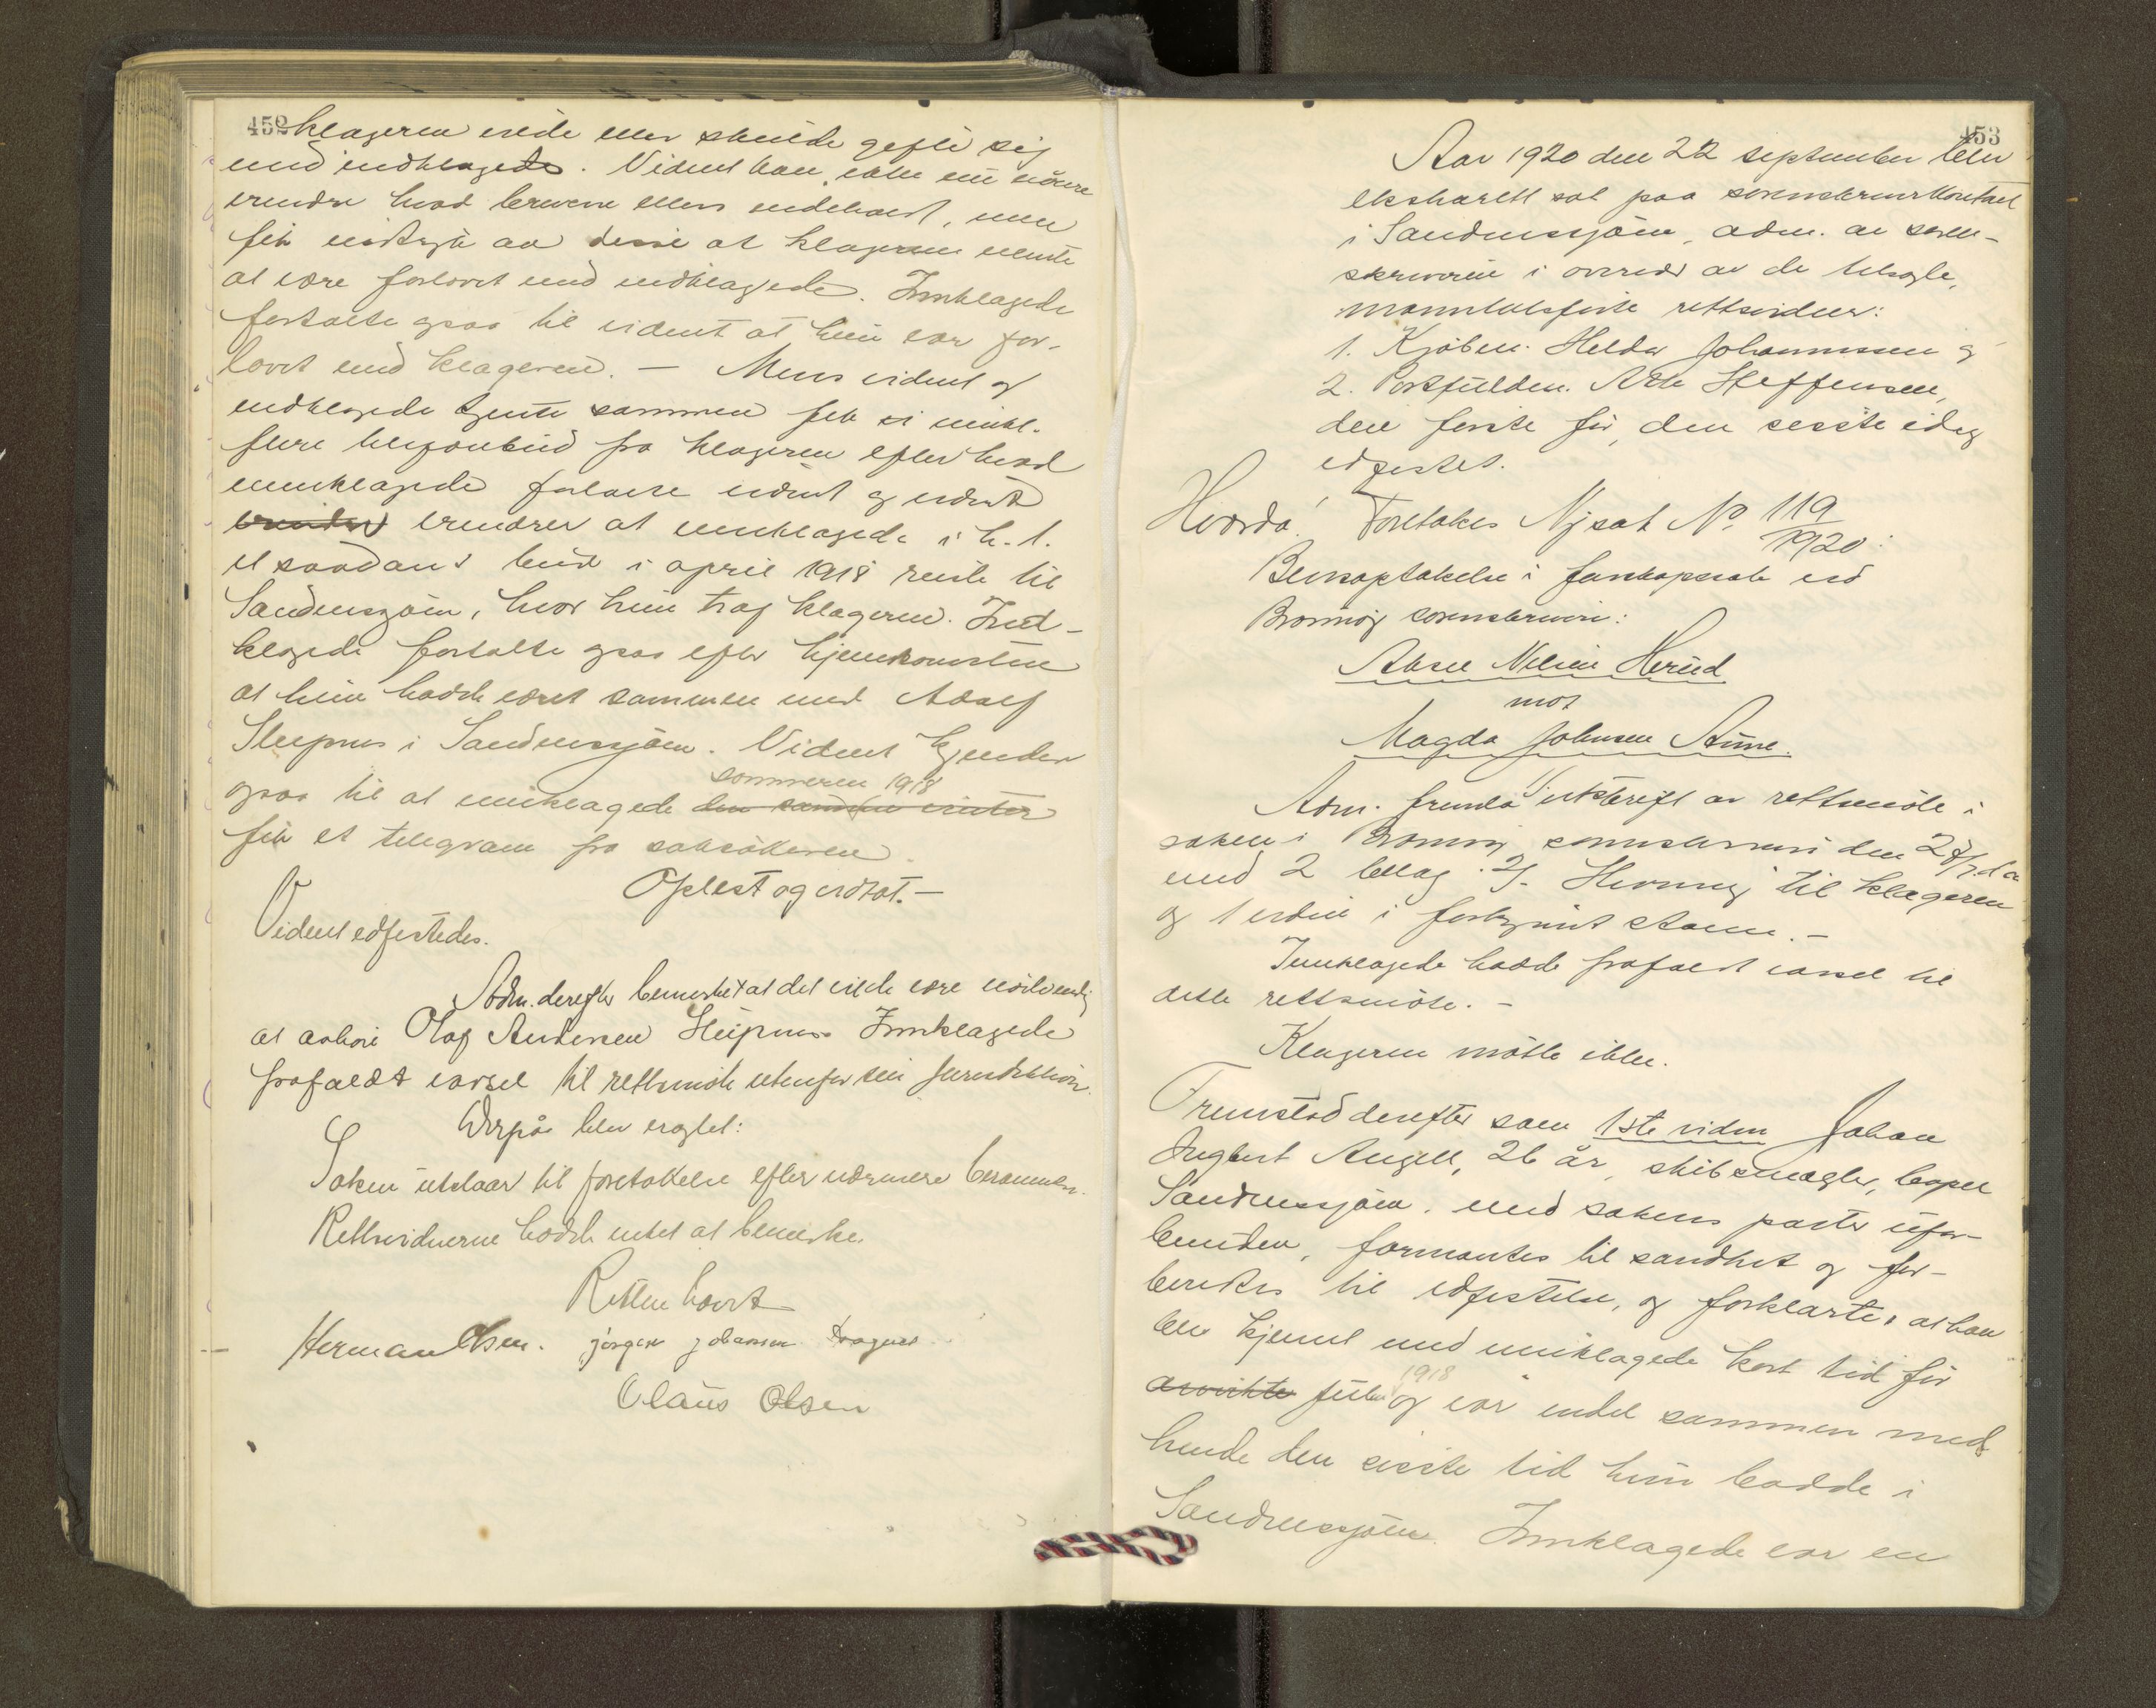 452
klageren vilde eller skulde gifte sig
med indklagede. Vidnet kan ikke nu nöiere
erindre hvad brevene ellers indeholdt, men
fik indtryk av disse at klageren mente
at være forlovet med indklagede. Innklagede
fortalte ogsaa til vidnet at hun var for-
lovet med klageren. — Mens vidnet og
indklagede tjente sammen fik
flere telefonbud fra klageren efter hvad
innklagede fortalte vidnet og vidnet
erindrer erindrer at innklagede i h. t.
et saadant bud i april 1918 reiste til
Sandnessjöen, hvor hun traf klageren. Ind-
klagede fortalte ogsaa efter hjemkomsten
at hun hadde været sammen med Adolf
Sleipnes i Sandnessjöen. Vidnet kjender
sommeren 1918
ogsaa til at innklagede den samme vinter
fik et telegram fra saksökeren.
Oplest og vedtat. —
Vidnet edfestedes.
Adm. derefter bemerket at det vilde være nödvendig
at avhöre Olaf Andersen Sleipnes. Innklagede
frafaldt varsel til rettsmöte utenfor sin jurisdiktion.
Derpaa blev avgtet:
Saken utstaar til foretakelse efter nærmere berammelse.
Rettsvidnerne hadde intet at bemerke.
Retten hævet
Herman Olsen. jörgen johansen
Olaus Olsen
453
Aar 1920 den 22 september blev
ekstrarett sat paa sorenskriverkontoret
i Sandnessjöen, adm. av soren-
skriveren i overvær av de tilsagte,
manntalsförte rettsvidner:
1. Kjöbm. Heldor Johannessen og
2. Postfuldm. Arth Steffensen,
den förste för, den sisste idag
edfestet.
Hvorda! Foretakes Njsak No 119/1920:
Bevisoptakelse i farskapssak ved
Brönnöy sorenskriveri:
Aksel Nilsen Herud
mot
Magda Johnsen Aune.
Adm. fremla utskrift av rettsmöte i
saken i Brönnöy sorenskriveri den 27/7 d a
med 2 bilag. 2/- Hevning til klageren
og 1 vidne i forkynt stann. —
Innklagede hadde frafaldt varsel til
dette rettsmöte. —
Klageren mötte ikke.
Fremstod derefter som 1ste vidne Johan
Ingbert Angell, 26 år, skibsmægler, bopæl
Sandnessjöen, med sakens parter ufor-
bunden, formantes til sandhet og for-
beredtes til edfestelse, og forklarte: at han
blev kjennt med innklagede kort tid för
1918
avvikte julen og var endel sammen med
hende den sisste tid hun bodde i
Sandnessjöen. Innklagede var en